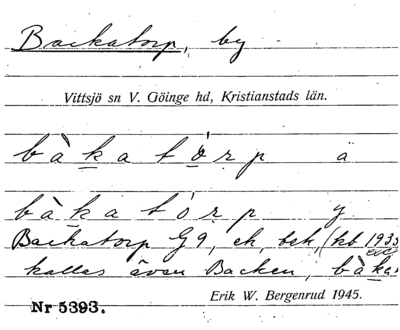 Backatorp, by
Vittsjö sn V. Göinge hd, Kristianstads län.
bàkatórp a
bàkatórp y
Backatorp G9, ek, beb, (kb 1935
kallas även Backen, bàkan
Erik W. Bergenrud 1945.
Nr 5393.